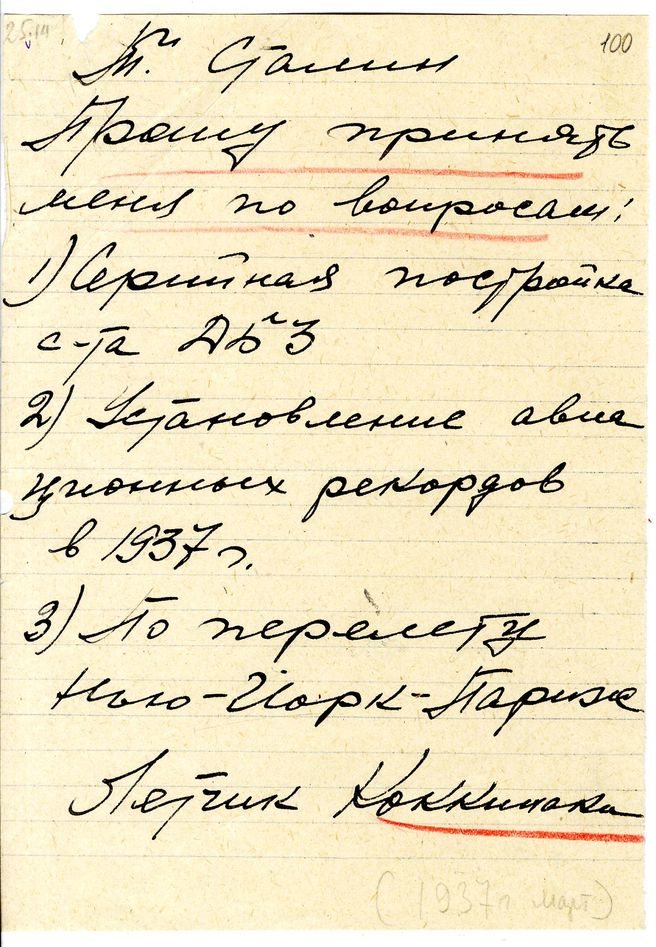 25.III
100
Тщ. Сталин
Прошу принять
меня по вопросам:
1) Серийная постройка
с-та ДБ-3
2) Установление авиа
ционных рекордов
в 1937 г.
3) По перелету
Нью-Йорк-Париж
Летчик Коккинаки
(1937 г. март)